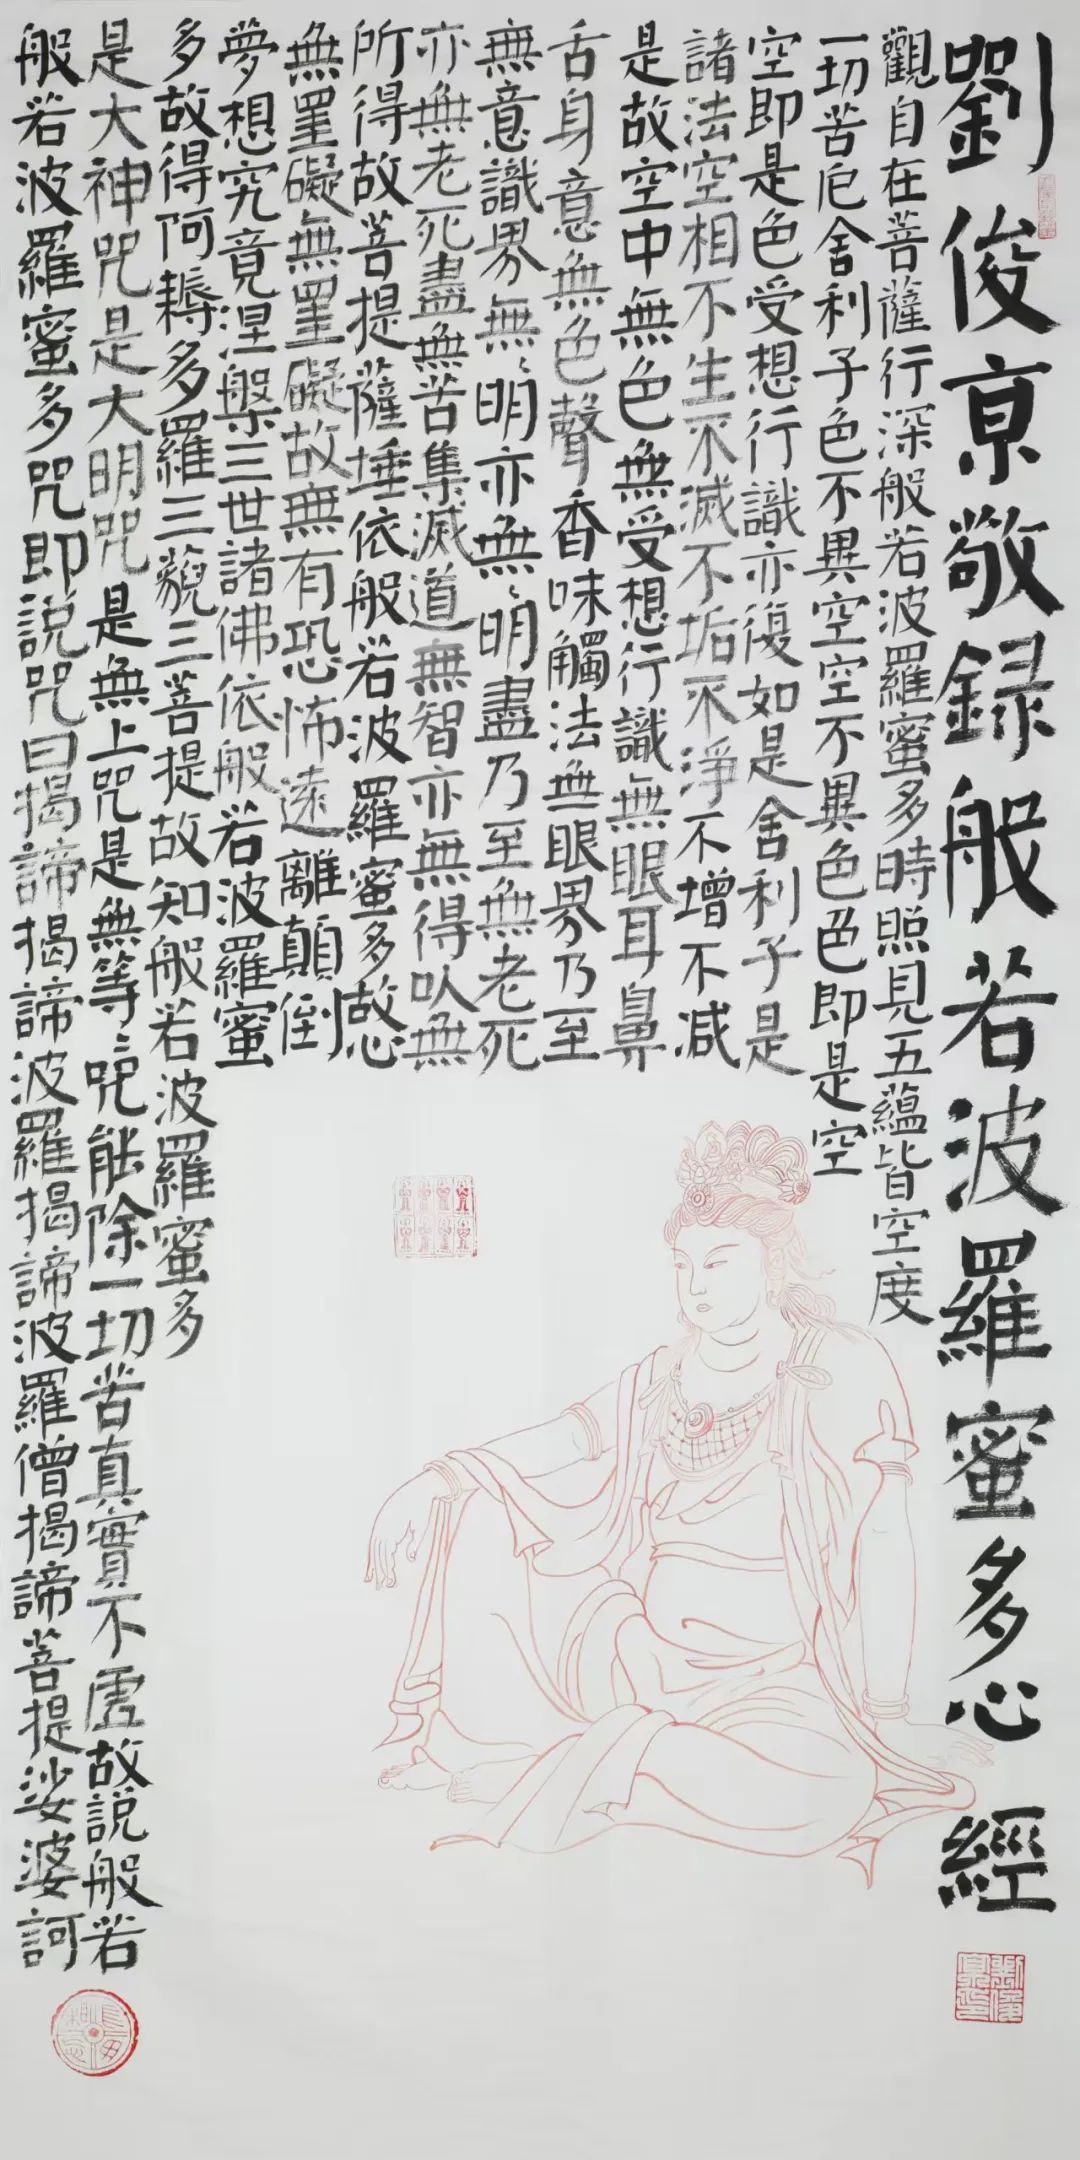 劉俊亰敬録般若波羅蜜多心經
觀自在菩薩行深般若波羅蜜多時照見五蘊皆空度
一切苦厄舍利子色不異空空不異色色即是空
空即是色受想行識亦復如是舍利子是
諸法空相不生不滅不垢不淨不增不減
是故空中無色無受想行識無眼耳鼻
舌身意無色聲香味觸法無眼界乃至
無意識界無〻明亦無〻明盡乃至無老死
亦無老死盡無苦集滅道無智亦無得以無
所得故菩提薩埵依般若波羅蜜多故心
無罣礙無罣礙故無有恐怖遠離顛倒
夢想究竟涅槃三世諸佛依般若波羅蜜
多故得阿耨多羅三藐三菩提故知般若波羅蜜多
是大神咒是大明咒是無上咒是無等〻咒能除一切苦真實不虛故說般若
般若波羅蜜多咒即說咒曰揭諦揭諦波羅揭諦波羅僧揭諦菩提娑婆訶